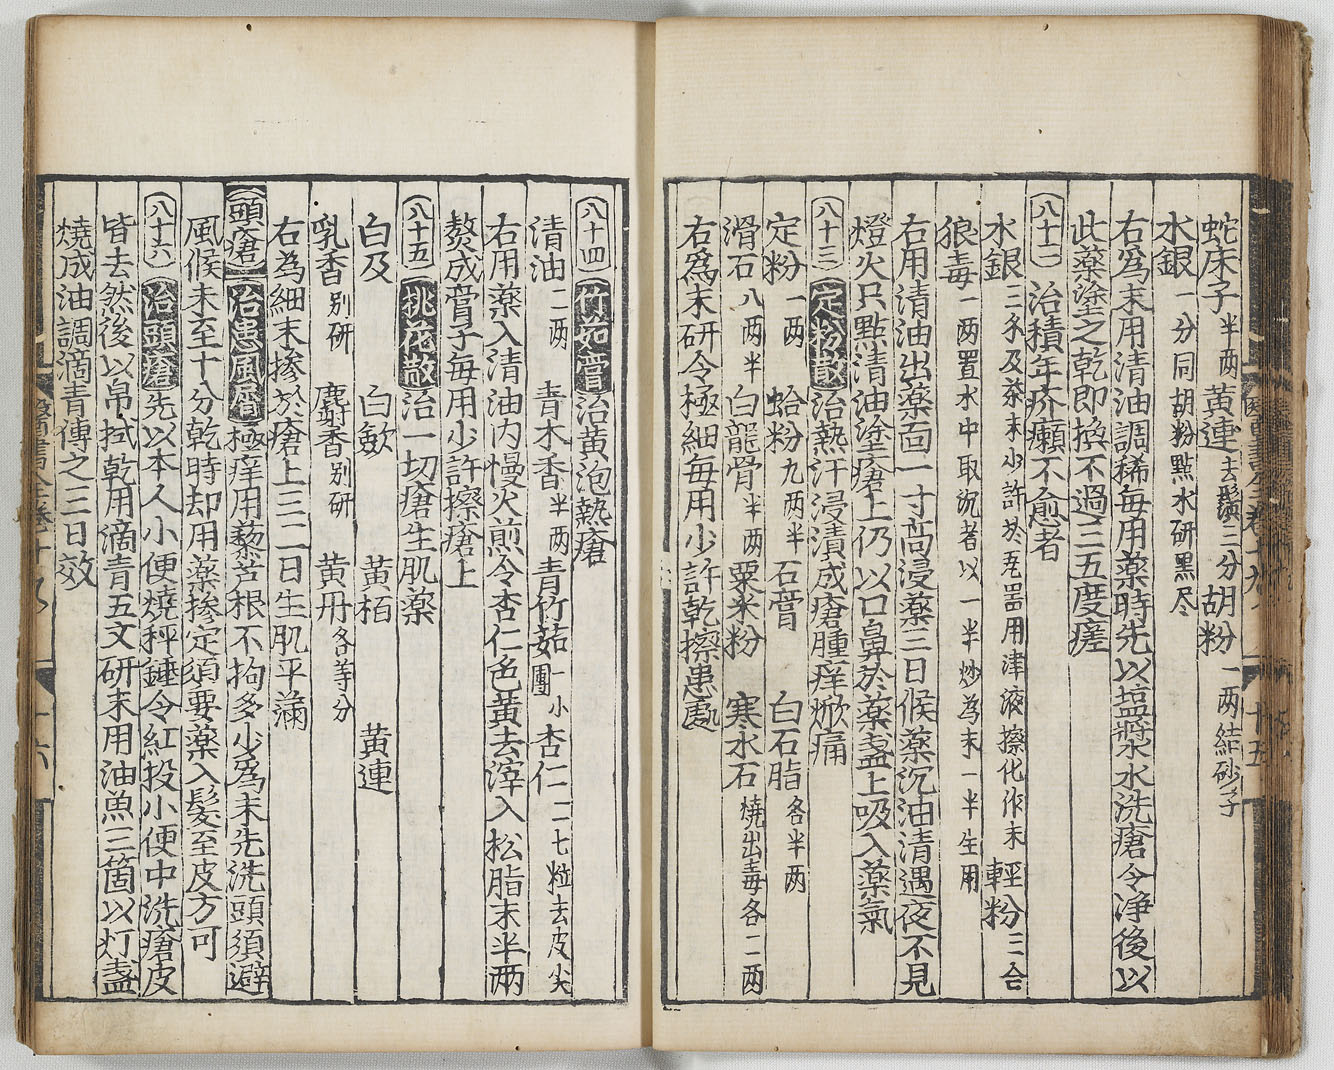 蛇床子半两 黄連去鬚二分 胡粉一两結砂子
水銀一分同胡粉點水研黑尽
右為末用清油調稀每用藥時先以塩漿水洗瘡令净後以
此藥塗之乾即換不過三五度瘥
八十二 治積年疥癩不愈者
水銀三分及茶末少許於瓦器用津液擦化作末 輕粉三合
狼毒一两置水中取沉者以一半炒為末一半生用
右用清油出藥面一寸高浸藥三日候藥沉油清遇夜不見
燈火只點清油塗瘡上仍以口鼻於藥盞上吸入藥氣
八十三 定粉散 治熱汗浸漬成瘡腫痒焮痛
定粉一两 蛤粉九两半 石膏 白石脂各半两
滑石八两半 白龍骨半两 粟米粉 寒水石燒出毒各二两
右爲末研令極細每用少許乾擦患處
八十四 竹茹膏 治黄泡熱瘡
清油二两 青木香半两 青竹茹一小團 杏仁二七粒去皮尖
右用藥入清油内慢火煎令杏仁色黄去滓入松脂末半两
熬成膏子每用少許擦瘡上
八十五 桃花散 治一切瘡生肌藥
白及 白歛 黄栢 黄連
乳香別研 麝香別研 黄丹各等分
右為細末摻於瘡上三二日生肌平滿
頭瘡 治患風屑 極痒用藜芦根不拘多少爲末先洗頭須避
風候未至十分乾時却用藥摻定須要藥入髮至皮方可
八十六 治頭瘡 先以本人小便燒秤錘令紅投小便中洗瘡皮
皆去然後以帛拭乾用滴青五文研末用油魚三箇以灯盞
燒成油調滴青傅之三日效